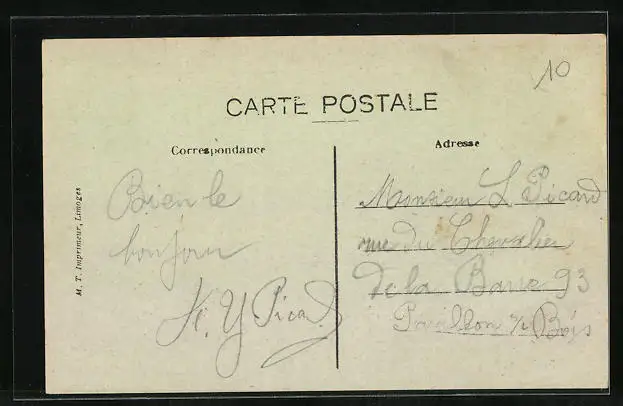 10
CARTE POSTALE
Correspondance
Adresse
M. T. Imprimeur, Limoges
Bien le
bonjour
Y Picard
Monsieur L Picard
rue du Chevalier
de la Barre 93
Pavillon s/s Bois